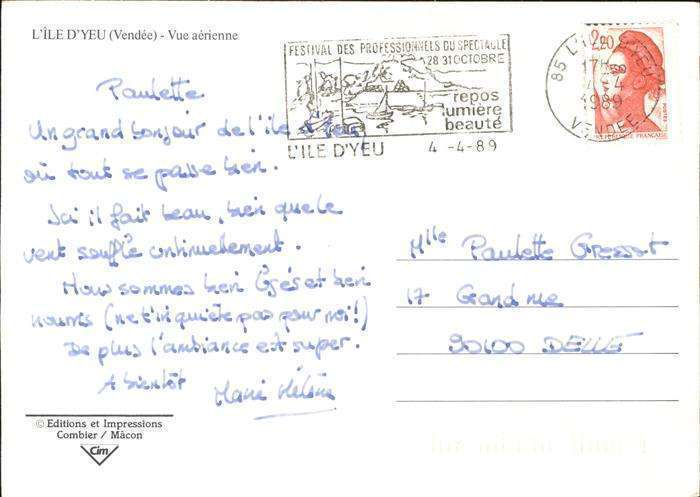 L'ÎLE D'YEU (Vendée) - Vue aérienne
FESTIVAL DES PROFESSIONNELS DU SPECTACLE
28 31 OCTOBRE
repos
lumière
beauté
L'ILE D'YEU 4 -4-89
85 L'ILE D'YEU
17H
4-4
1989
VENDEE
2,20
REPUBLIQUE FRANÇAISE
Paulette
Un grand bonjour de l'île d'Yeu
où tout se passe bien.
Ici il fait beau, bien que le
vent souffle continuellement.
Nous sommes bien logés et bien
nourris (ne t'inquiète pas pour moi!)
De plus l'ambiance est super.
A bientôt
Marie Hélène
Mlle Paulette
17 Grand rue
90100 DELLE
© Editions et Impressions
Combier / Mâcon
Cim